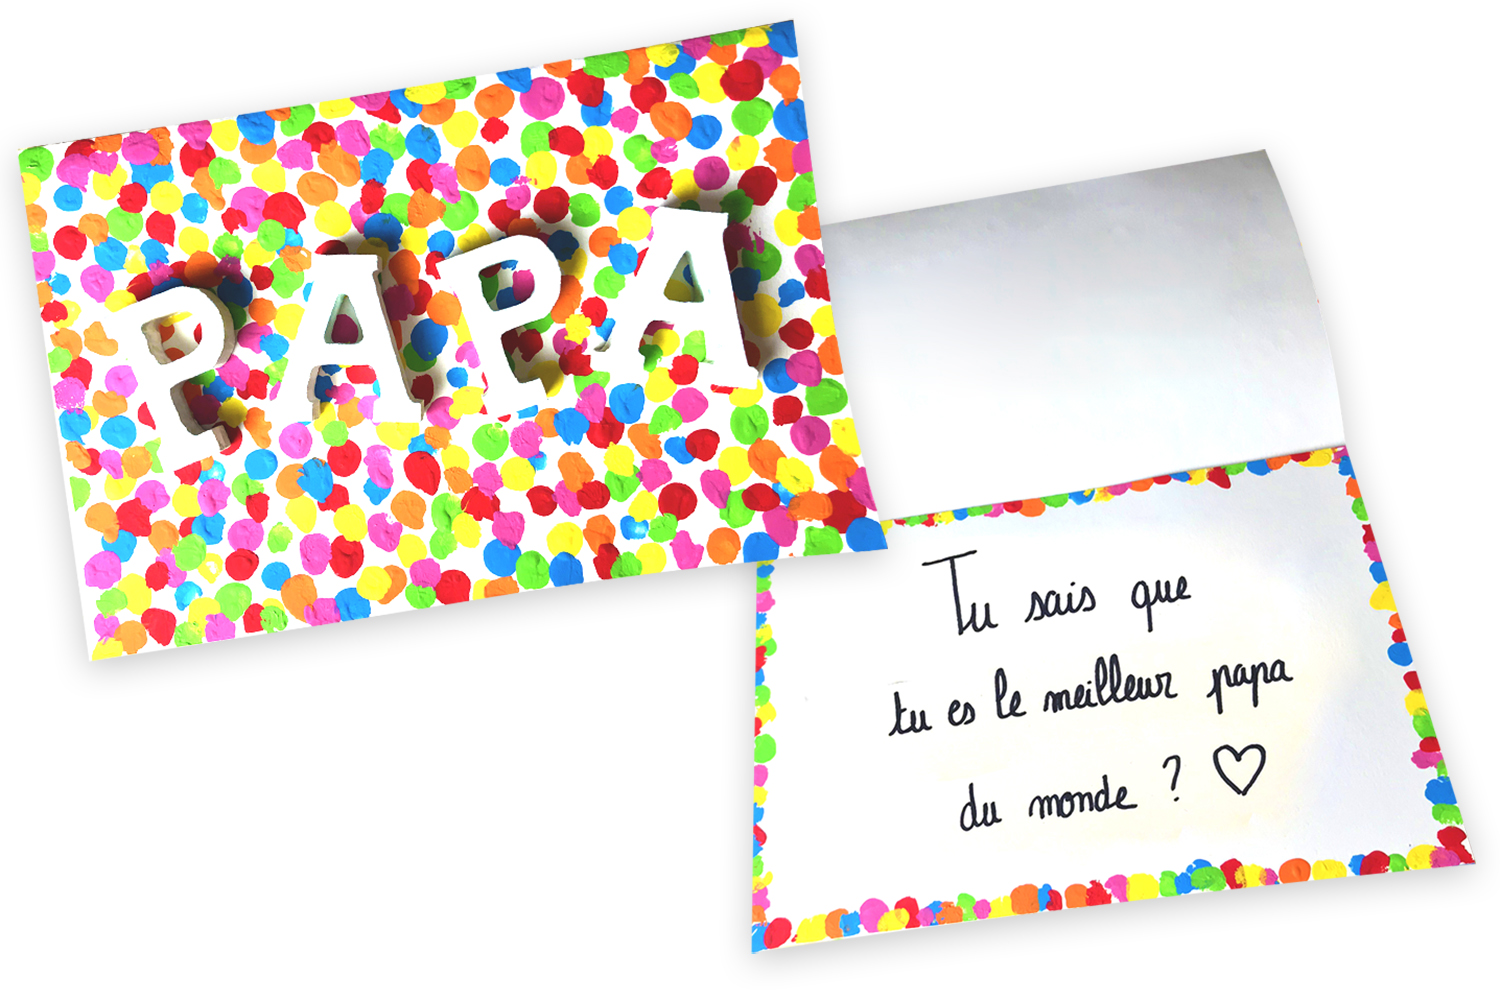 PAPA
Tu sais que
tu es le meilleur papa
du monde ? ♡